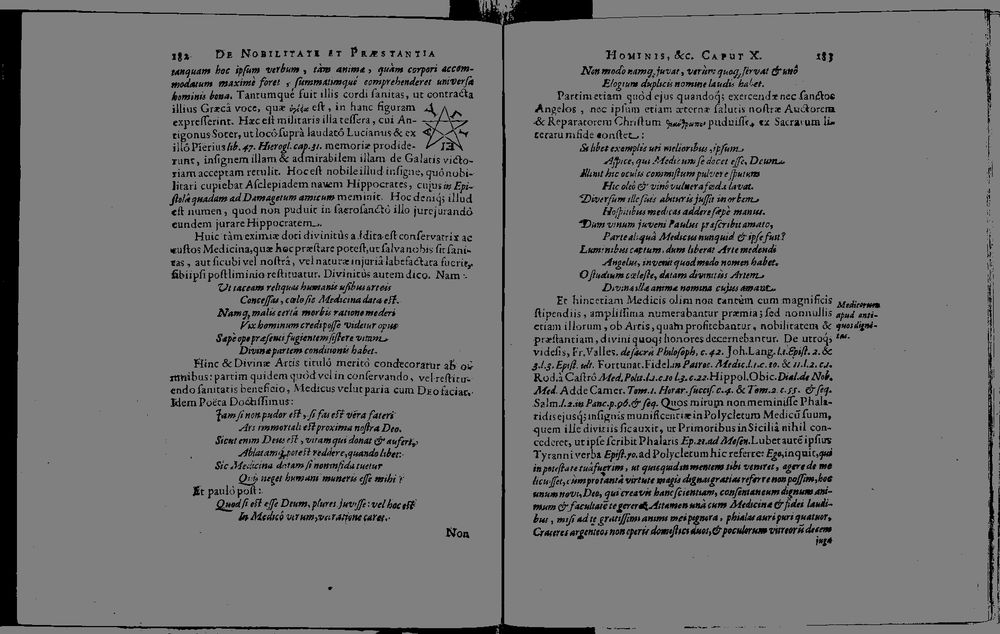 182 DE NOBILITATE ET PRÆSTANTIA
tanquam hoc ipsum verbum, tàm anima, quàm corpori accom-
modatum maximè foret, summatimque comprehenderet universa
hominis bona. Tantumque fuit illis cordi sanitas, ut contracta
illius Græcâ voce, quæ est, in hanc figuram
expresserint. Hæc est militaris illa tessera, cui An-
tigonus Soter, ut locô suprà laudatô Lucianus & ex
illô Pierius lib. 47. Hierogl. cap. 31. memoriæ prodide-
runt, insignem illam & admirabilem illam de Galatis victo-
riam acceptam retulit. Hoc est nobile illud insigne, quô nobi-
litari cupiebat Asclepiadem navem Hippocrates, cujus in Epi-
stolâ quadam ad Damagetum amicum meminit. Hoc deniq; illud
est numen, quod non puduit in sacrosanctô illo jurejurandô
eundem jurare Hippocratem.
Huic tàm eximiæ doti divinitùs addita est conservatrix ac
custos Medicina, quæ hoc præstare potest, ut salva nobis sit sani-
tas, aut sicubi vel nostrâ, vel naturæ injuriâ labefactata fuerit,
sibi ipsi postliminio restituatur. Divinitùs autem dico. Nam
Ut taceam reliqua humanis usibus arteis
Concessas, cælo sic Medicina data est.
Namq; malis certâ morbis ratione mederi
Vix hominum credi posse videtur opus
Sæpè ope præsenti fugientem sistere vitam
Divina partem conditionis habet.
Hinc & Divinæ Artis titulô meritò condecoratur ab o-
mnibus: partim quidem quòd vel in conservando, vel restitu-
endo sanitatis beneficio, Medicus velut paria cum DEO faciat.
Idem Poëta Doctissimus:
Jam si non pudor est, si fas est vera fateri
Ars immortali est proxima nostra Deo.
Sicut enim Deus est, vitam qui donat & aufert,
Ablatamq; potest reddere, quando libet:
Sic Medicina datam si non infida tuetur
Quis neget humani muneris esse mihi?
Et paulò pòst:
Quod si est esse Deum, plures juvisse: vel hoc est
In Medicô virum, ut ratione caret.
Non
HOMINIS, &c. CAPUT X. 183
Non modo namq; juvat, verùm quoq; servat & unô
Elogium duplicis nomine laudis habet.
Partim etiam quòd ejus quandoq; exercendæ nec sanctos
Angelos, nec ipsum etiam æternæ salutis nostræ Auctorem
& Reparatorem Christum puduisse, ex Sacrarum li-
terarum fide constet:
Si libet exemplis uti melioribus, ipsum
Aspice, qui Medicum se docet esse, Deum
Illinit hic oculis commistum pulvere sputum
Hic oleô & vinô vulnera fœda lavat.
Diversum ille suis abituris jussit in orbem
Hospitibus medicas addere sæpè manus.
Dum vinum juveni Paulus præscribit amato,
Parte aliquâ Medicus nunquid & ipse fuit?
Luminibus captum, dum liberat Arte medendi
Angelus, invenit quod modo nomen habet.
O studium cæleste, datam divinitùs Artem
Divina illa anima nomina cujus amant.
Et hinc etiam Medicis olim non tantùm cum magnificis
stipendiis, amplissima numerabantur præmia; sed nonnullis
etiam illorum, ob Artis, quam profitebantur, nobilitatem &
præstantiam, divini quoq; honores decernebantur. De utroq;
videsis, Fr. Valles. de sacrâ Philosoph. c. 42. Joh. Lang. l. 1. Epist. 2. &
3. l. 3. Epist. ult. Fortunat. Fidel. in Patroc. Medic. l. 1. c. 10. & 11. l. 2. c. 1.
Rod. à Castrô Med. Polit. l. 1. c. 10. l. 3. c. 22. Hippol. Obic. Dial. de Nob.
Med. Adde Camer. Tom. 1. Horar. succis. c. 4. & Tom. 2. c. 55. & seq.
Salm. l. 2. in Panc. p. 96. & seq. Quos mirum non meminisse Phala-
ridis ejusq; insignis munificentiæ in Polycletum Medicũ suum,
quem ille divitiis sic auxit, ut Primoribus in Siciliâ nihil con-
cederet, ut ipse scribit Phalaris Ep. 21. ad Mesen. Lubet autẽ ipsius
Tyranni verba Epist. 70. ad Polycletum hîc referre: Ego, inquit, qui
in potestate tuâ fuerim, ut quicquid in mentem tibi veniret, agere de me
licuisset, cùm pro tantâ virtute magis digna gratias referre non possim, hoc
unum novi, Deo, qui creavit hanc scientiam, consentaneum dignum ani-
mum & facultatẽ te gerere. Attamen unâ cum Medicina & fidei laudi-
bus, misi ad te gratissimi animi mei pignora, phialas auri puri quatuor,
Crateres argenteos non operis domestici duos, & poculorum vitreorũ decem
juga
Medicorum
apud anti-
quos digni-
tas.